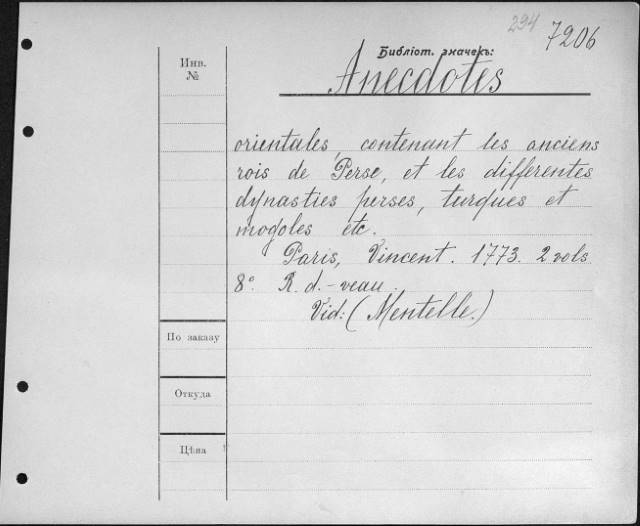 294 7206
Библіот. значекъ:
Инв.
№
Anecdotes
orientales, contenant les anciens
rois de Perse, et les differentes
dynasties perses, turques et
mogoles etc.
Paris, Vincent. 1773. 2 vols
8°. R. d.-veau.
Vid: (Mentelle.)
По заказу
Откуда
Цѣна